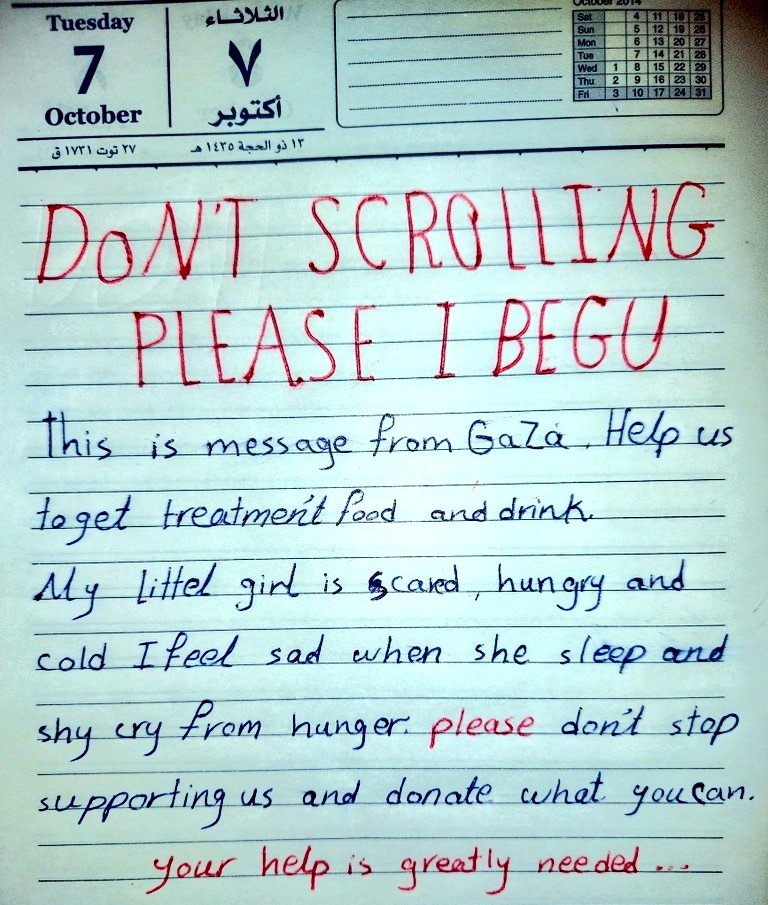 October 2014
Tuesday
7
October
الثلاثاء
٧
أكتوبر
٢٧ توت ١٧٣١ ق
١٣ ذو الحجة ١٤٣٥ هـ
Sat 4 11 18 25
Sun 5 12 19 26
Mon 6 13 20 27
Tue 7 14 21 28
Wed 1 8 15 22 29
Thu 2 9 16 23 30
Fri 3 10 17 24 31
DON'T SCROLLING
PLEASE I BEGU
This is message from GaZa. Help us
to get treatment food and drink.
My littel girl is scared, hungry and
cold I feel sad when she sleep and
shy cry from hunger. please don't stop
supporting us and donate what you can.
your help is greatly needed...